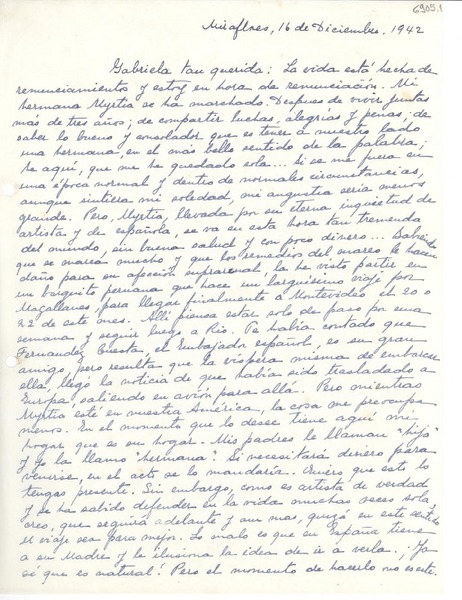 6909.1
Miraflores, 16 de Diciembre, 1942
Gabriela tan querida: La vida está hecha de
renunciamientos y estoy en hora de renunciación. Mi
hermana Myrtia se ha marchado. Despues de vivir juntas
más de tres años; de compartir luchas, alegrías y penas; de
saber lo bueno y consolador que es tener a nuestro lado
una hermana, en el más bello sentido de la palabra;
he aquí, que me he quedado sola... Si se me fuera en
una época normal y dentro de normales circunstancias,
aunque sintiera mi soledad, mi angustia sería menos
grande. Pero, Myrtia, llevada por su eterna inquietud de
artista y de española, se va en esta hora tan tremenda
del mundo, sin buena salud y con poco dinero... Sabiendo
que se marea mucho y que los remedios del mareo le hacen
daño para su afección suprarrenal, la he visto partir en
un barquito peruano que hace un larguísimo viaje por
Magallanes, para llegar finalmente a Montevideo el 20 o
22 de este mes. Allí piensa estar solo de paso por una
semana y seguir luego a Río. Te había contado que
Fernandez Cuesta, el Embajador español, es su gran
amigo, pero resulta que la víspera misma de embarcarse
ella, llegó la noticia de que había sido trasladado a
Europa, saliendo en avión para allá. Pero mientras
Myrtia esté en nuestra América, la cosa me preocupa
menos. En el momento que lo desee tiene aquí mi
hogar que es su hogar. Mis padres le llaman "hija"
y yo la llamo "hermana". Si necesitará dinero para
venirse, en el acto se lo mandaría. Quiero que esto lo
tengas presente. Sin embargo, como es artista de verdad
y se ha sabido defender en la vida muchas veces sola,
creo, que seguirá adelante y aun mas, quizá en este sentido
el viaje sea para mejor. Lo malo es que en España tiene
a su Madre y le ilusiona la idea de ir a verla. ¡Ya
sé que es natural! Pero el momento de hacerlo no es este.